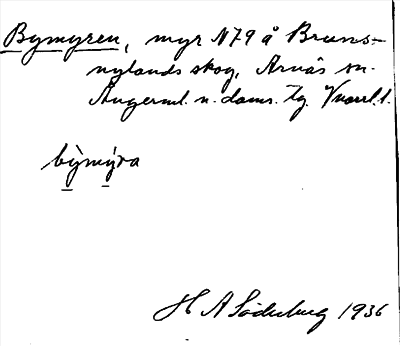 Bymyren, myr N79 å Bruns-
nylands skog, Arnäs sn.
Ångerml. n. doms. Tg. Vnorrl. l.
bỳmýra
H A Söderberg 1936